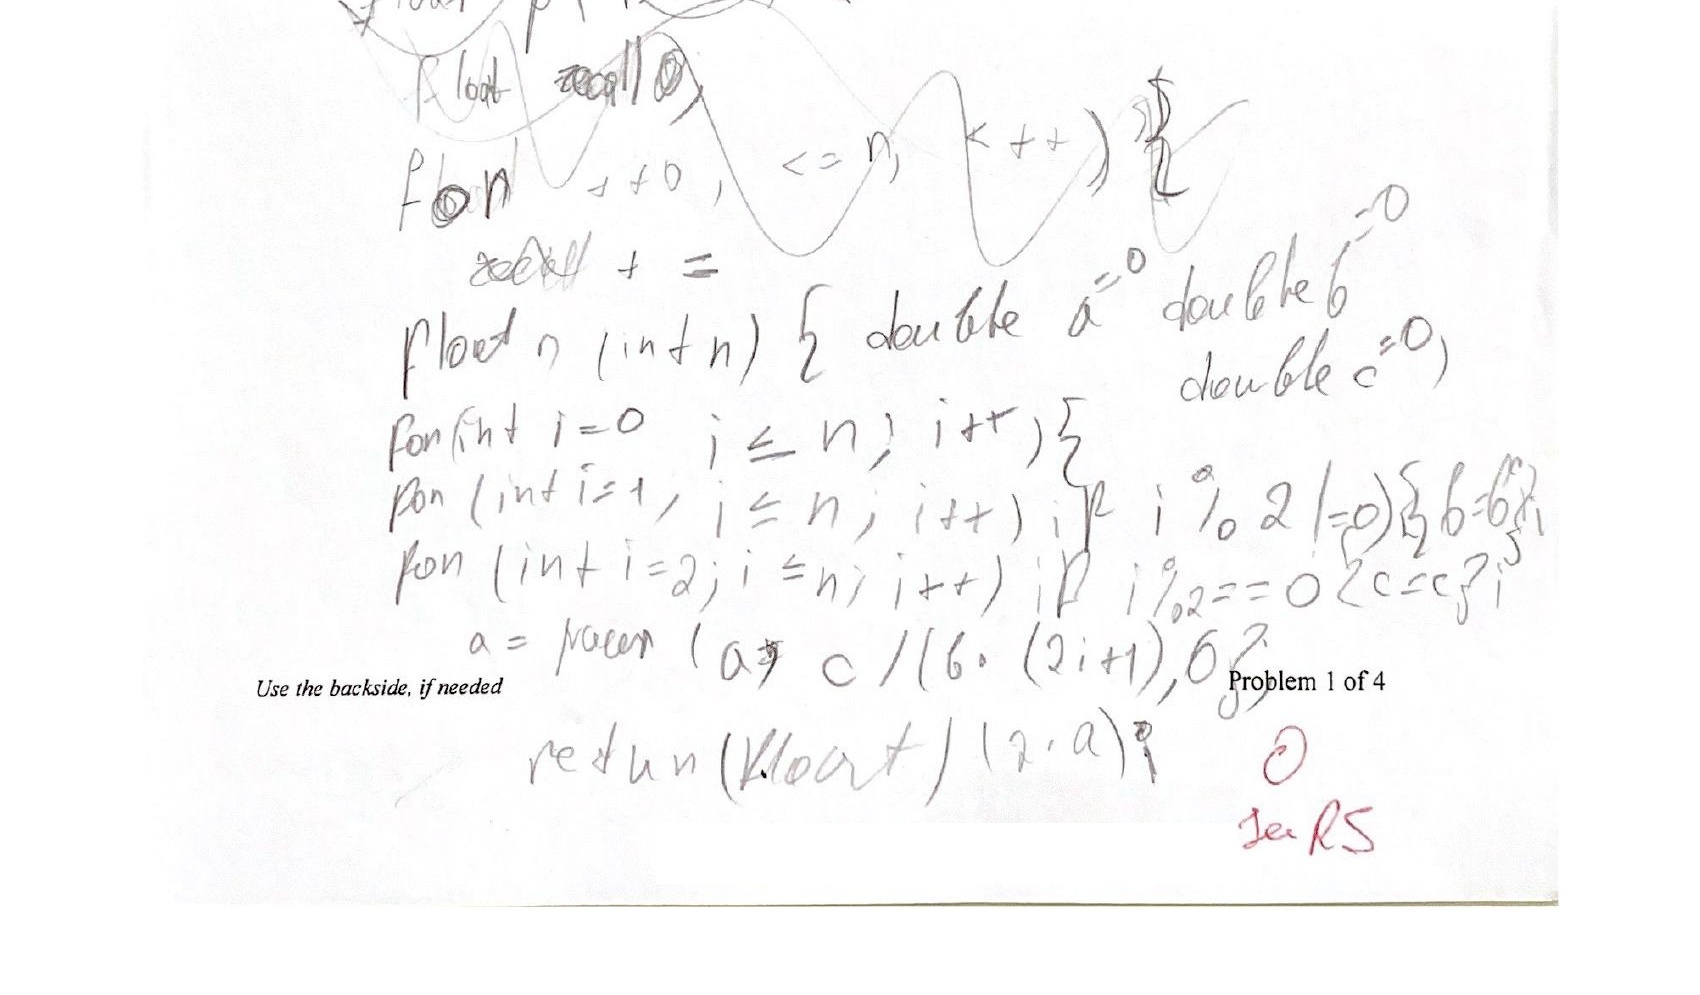 float
float recall 0,
for ++0, <= n, <++) {
recall + =
float n (int n) { double a=0 double b=0
double c=0)
for(int i=0 i ≤ n; i++){
for (int i=1, i ≤ n; i++) if i % 2 !=0){ b=b};
for (int i=2; i ≤ n; i++) if i%2==0 {c=c}i
a = power (a, c /(6. (2i+1), 6};
Use the backside, if needed Problem 1 of 4
return (float) (2.a);
0
RS